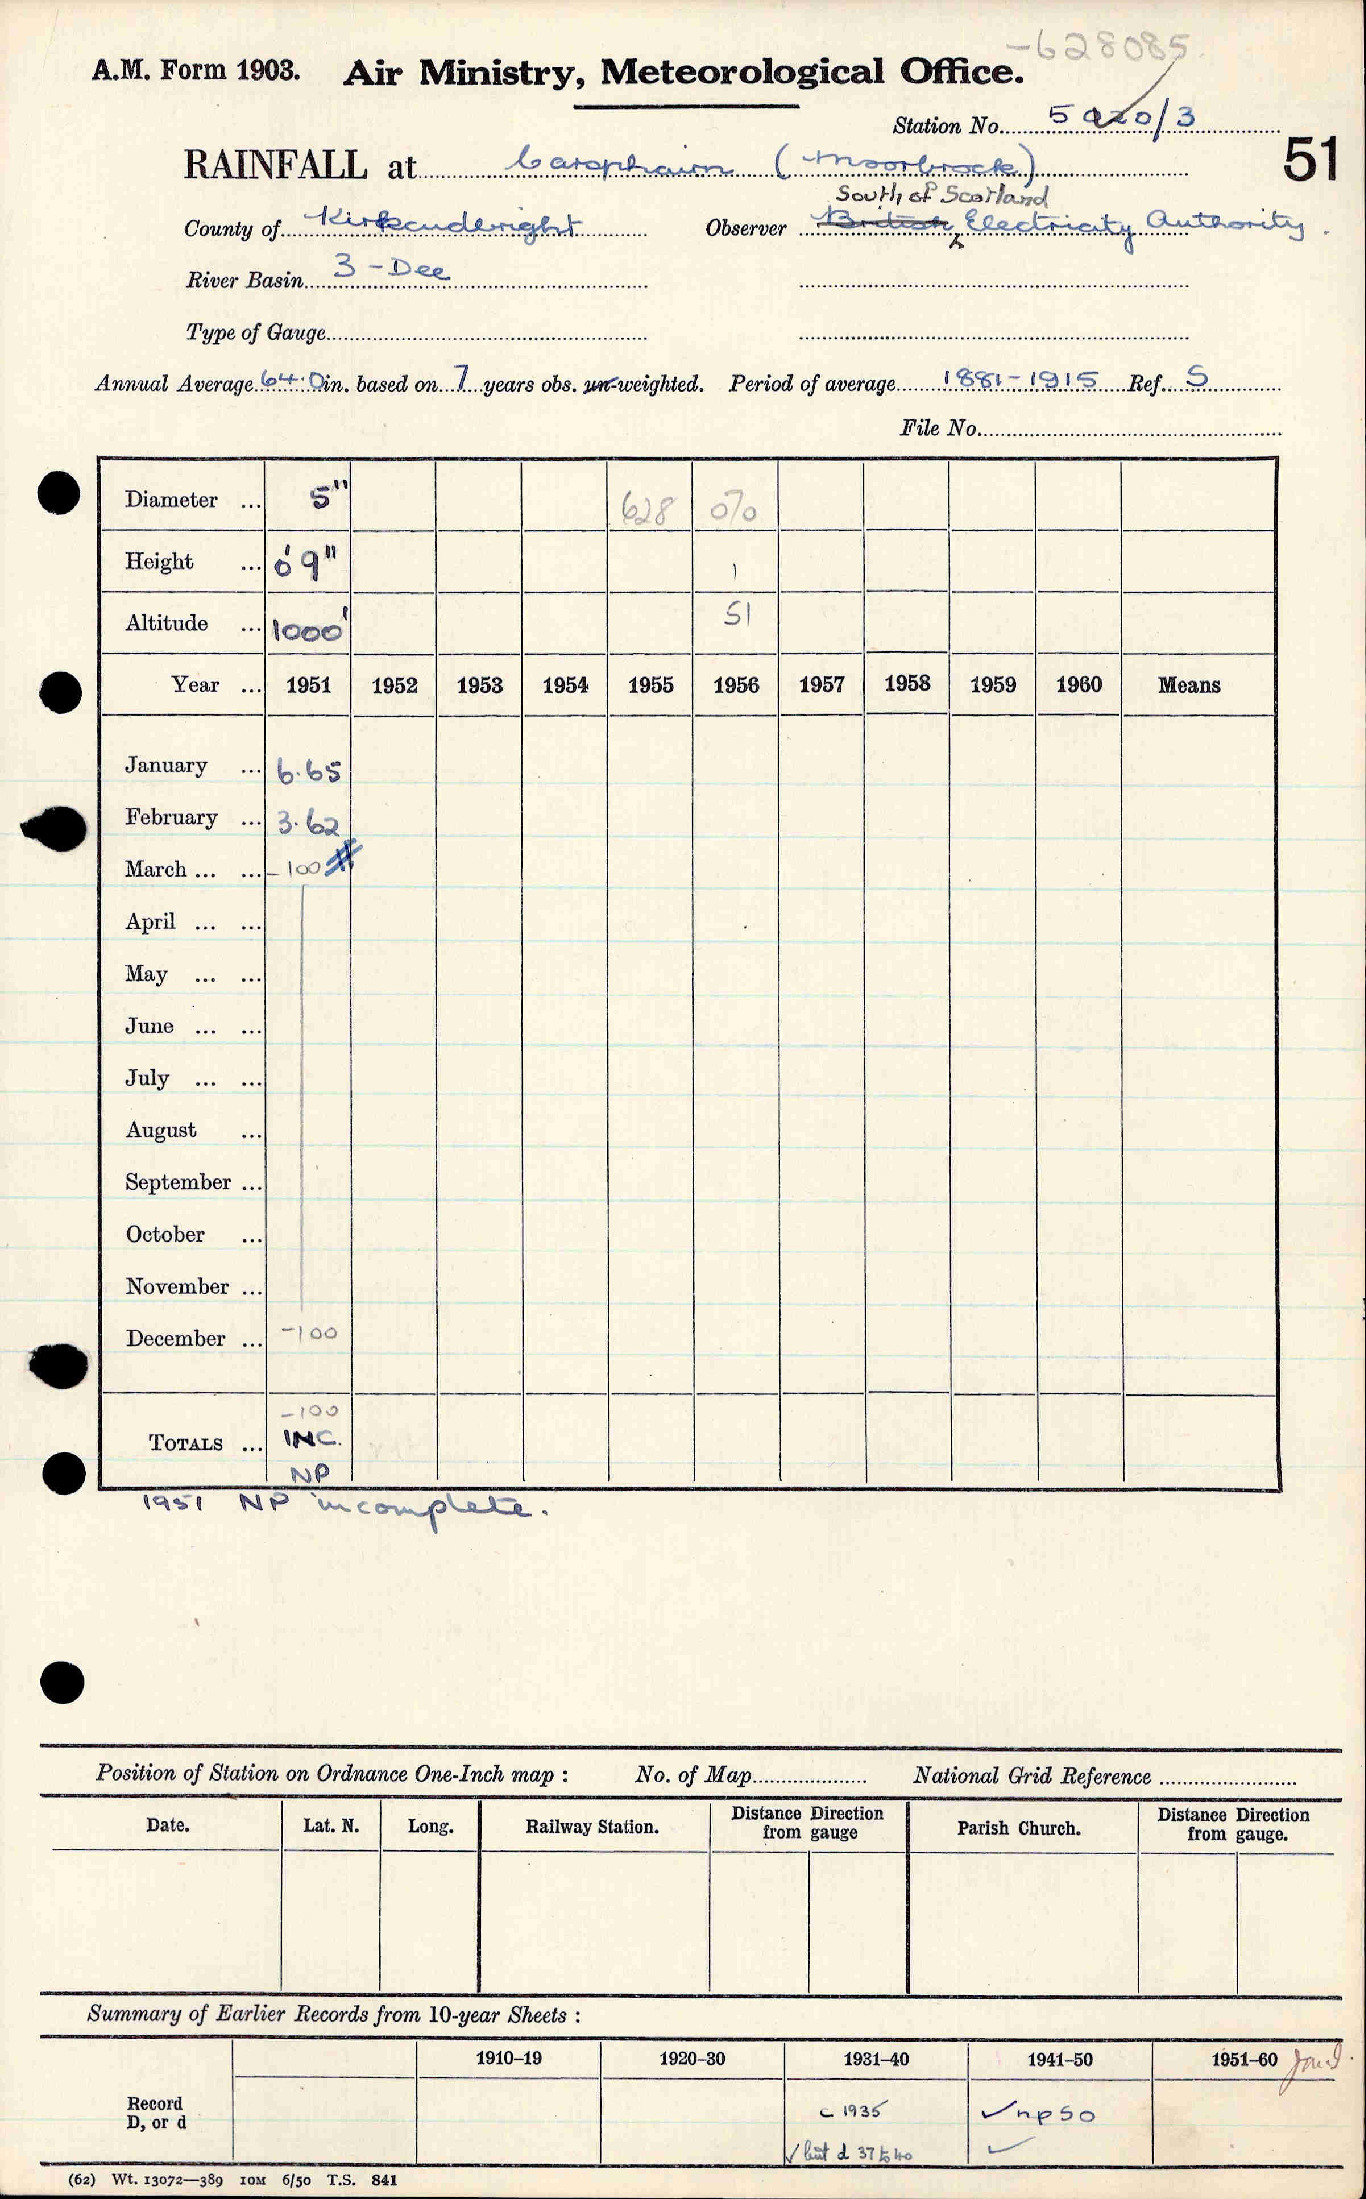 -628085
A.M. Form 1903. Air Ministry, Meteorological Office.
Station No. 5020/3
51
RAINFALL at Carsphairn (Moorbrock)
South of Scotland
County of Kirkcudbright Observer British Electricity Authority.
River Basin 3 - Dee
Type of Gauge
Annual Average 64.0 in. based on 7 years obs. un-weighted. Period of average 1881-1915 Ref. S
File No.
Diameter ... 5" 628 070
Height ... 0' 9" 1
Altitude ... 1000' 51
Year ... 1951 1952 1953 1954 1955 1956 1957 1958 1959 1960 Means
January ... 6.65
February ... 3.62
March ... ... -100 #
April ... ...
May ... ...
June ... ...
July ... ...
August ...
September ...
October ...
November ...
December ... -100
-100
TOTALS ... INC.
NP
1951 NP incomplete.
Position of Station on Ordnance One-Inch map : No. of Map National Grid Reference
Date. Lat. N. Long. Railway Station. Distance Direction from gauge Parish Church. Distance Direction from gauge.
Summary of Earlier Records from 10-year Sheets :
1910–19 1920–30 1931–40 1941–50 1951–60
Record c 1935 ✓np50
D, or d
✓ but d 37 to 40 ✓
(62) Wt. 13072—389 10M 6/50 T.S. 841